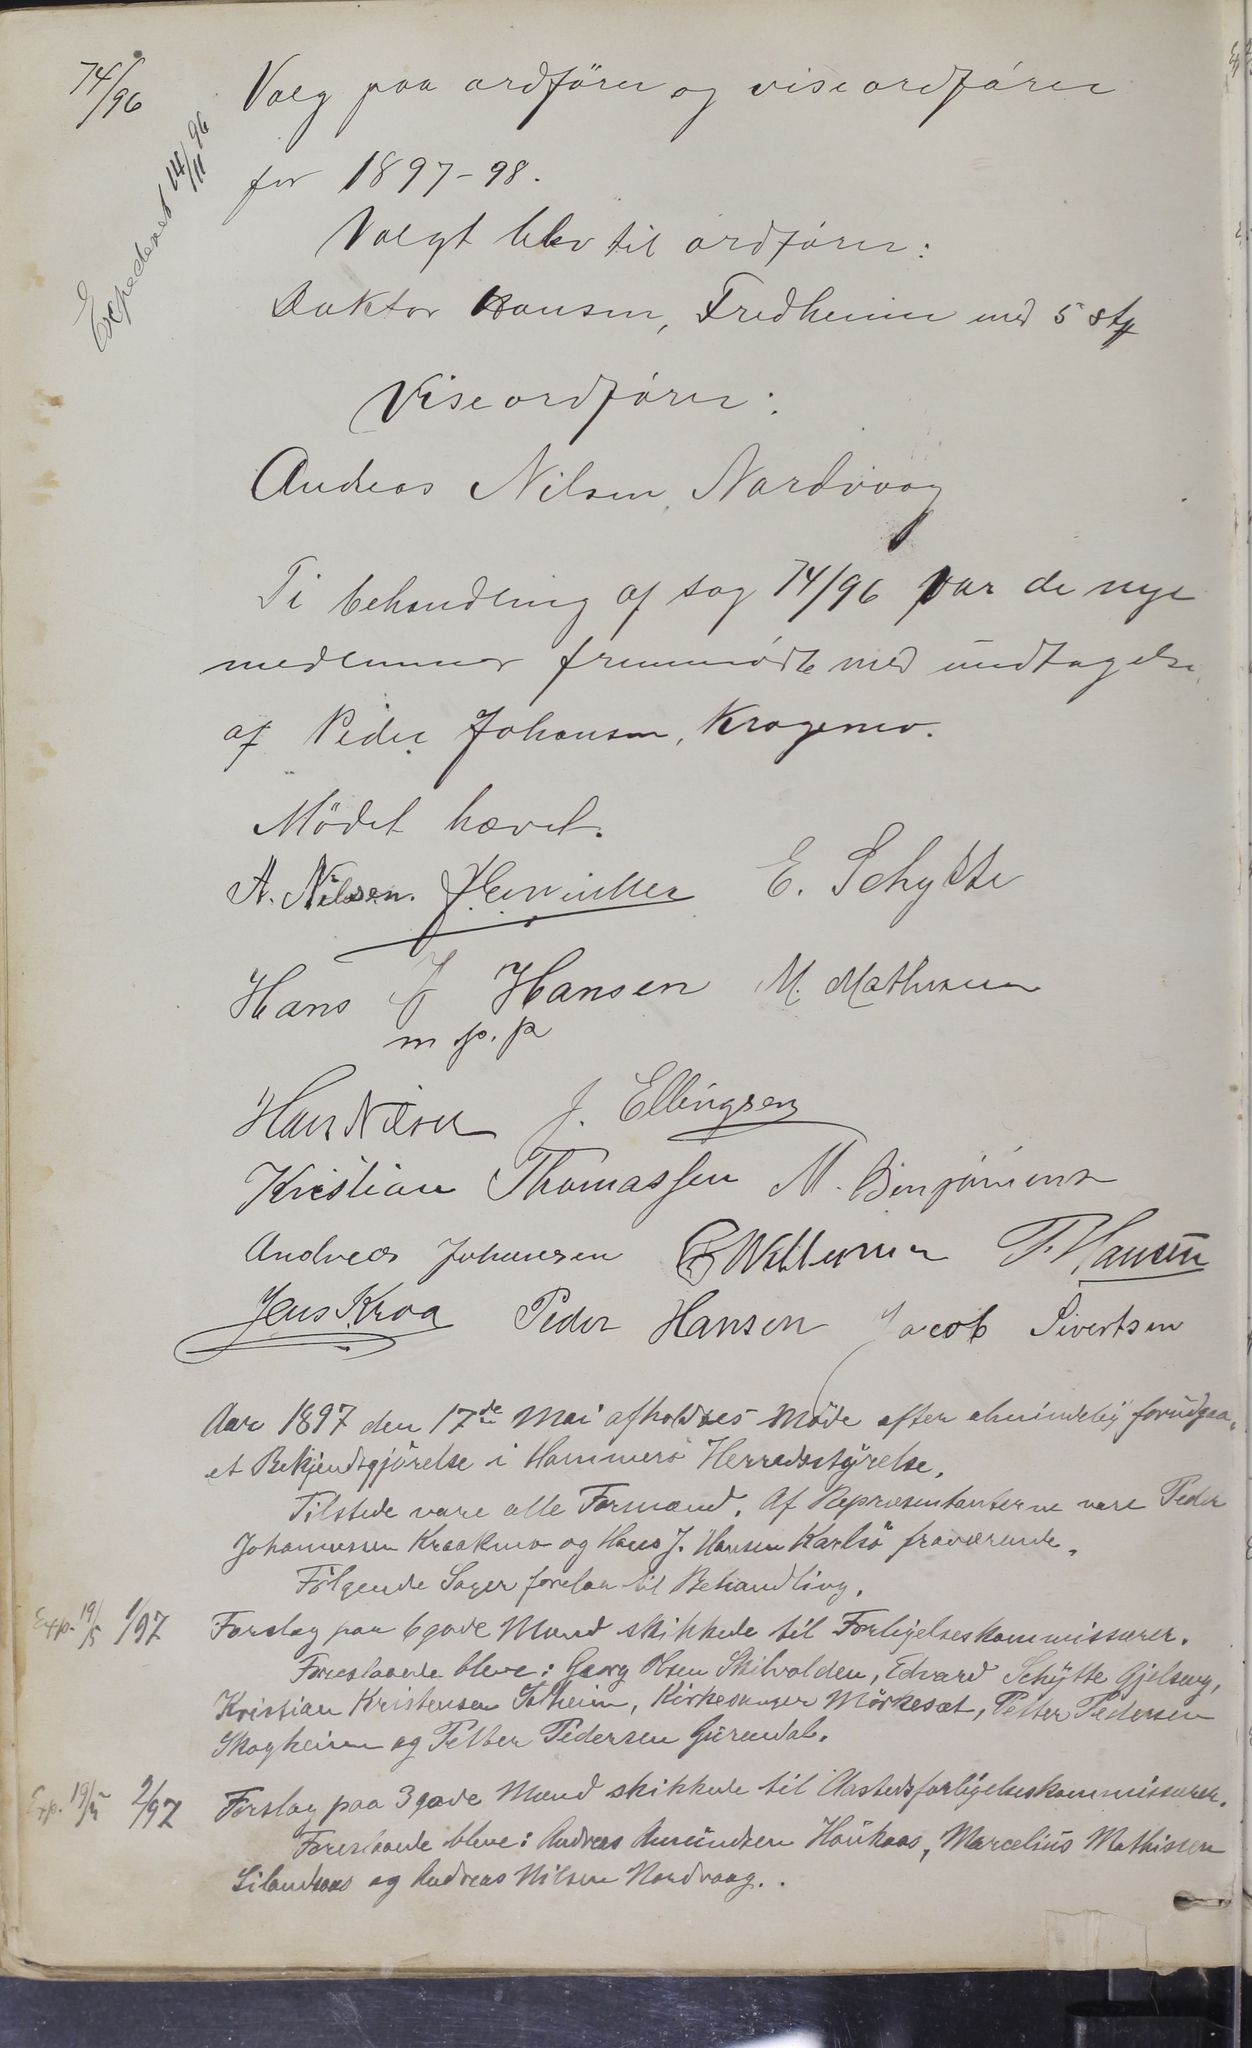 74/96 Valg paa ordförer og viseordförer
Expederet 14/11 96
for 1897-98.
Valgt blev til ordförer:
Doktor Hansen, Fredheim med 5 st
Viseordförer:
Andreas Nilsen, Nordvaag
Ti behandling af sag 74/96 var de nye
medlemmer fremmödte med undtagelse
af Peder Johansen, Kragemo.
Mödet hævet.
A. Nilsen. E. Schytte
Hans J Hansen M. Mathisen
m. p. p
Hans Nilsen J. Ellingsen
Kristian Thomassen M. Benjaminsen
Andreas Johansen Willumsen P. Hansen
Jens Kroa Peder Hansen Jacob Sivertsen
Aar 1897 den 17de Mai afholdtes Möde efter almindelig forudgaa-
et Bekjendtgjörelse i Hammerö Herredsstyrelse.
Tilstede vare alle Formænd. Af Repræsentanterne vare Peder
Johannesen Kraakmo og Hans J. Hansen Karlsö fraværende.
Fölgende Sager forelaa til Behandling.
Exp. 19/5 1/97 Forslag paa 6 gode Mænd skikkede til Forligelseskommissærer.
Foreslaaede bleve: Georg Olsen Skilvolden, Edvard Schytte Gjelseng,
Kristian Kristensen Solheim, Kirkesanger Mörkesæt, Petter Pedersen
Skogheim og Petter Pedersen Gurendal.
Exp. 19/5 2/97 Forslag paa 3 gode Mænd skikkede til Aastedsforligelseskommissærer.
Foreslaaede bleve: Andreas Amundsen Haukaas, Marcelius Mathissen
og Andreas Nilsen Nordvaag.